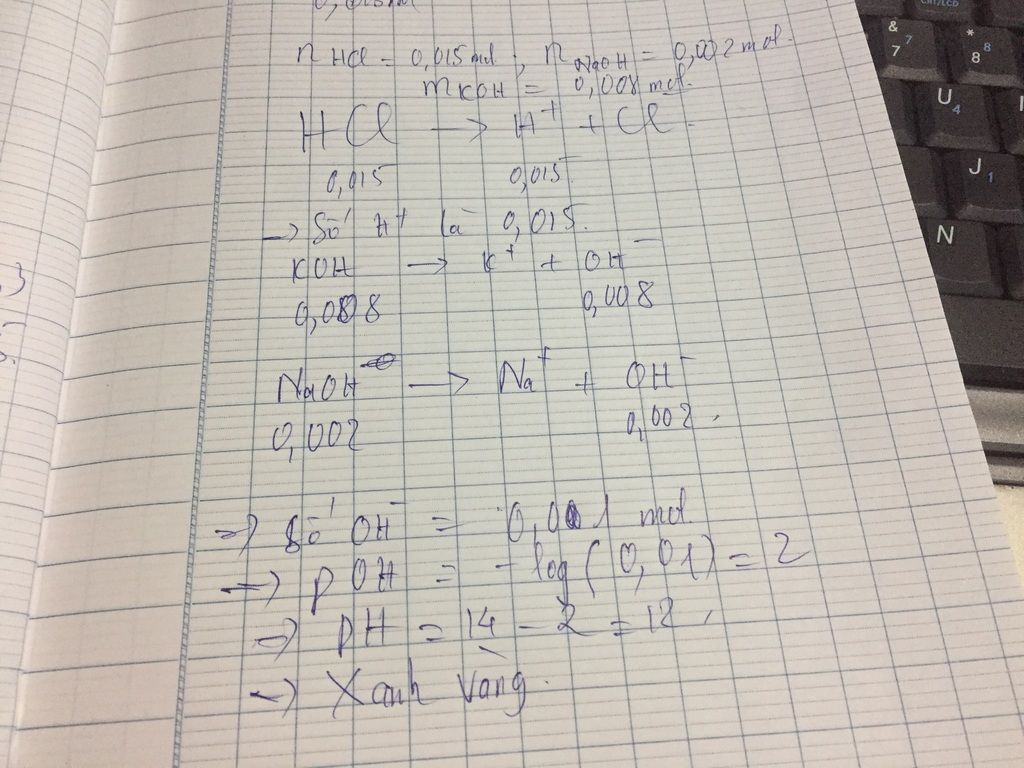 n HCl = 0,015 mol ; n NaOH = 0,002 mol.
n KOH = 0,008 mol.
HCl → H⁺ + Cl⁻.
0,015 0,015.
→ Số H⁺ là 0,015.
KOH → K⁺ + OH⁻
0,008 0,008
NaOH → Na⁺ + OH⁻
0,002 0,002.
⇒ Số OH⁻ = 0,01 mol.
→ pOH = -log(0,01) = 2
⇒ pH = 14 - 2 = 12.
→ Xanh vàng.
& 7 7
* 8 8
U 4
J 1
N